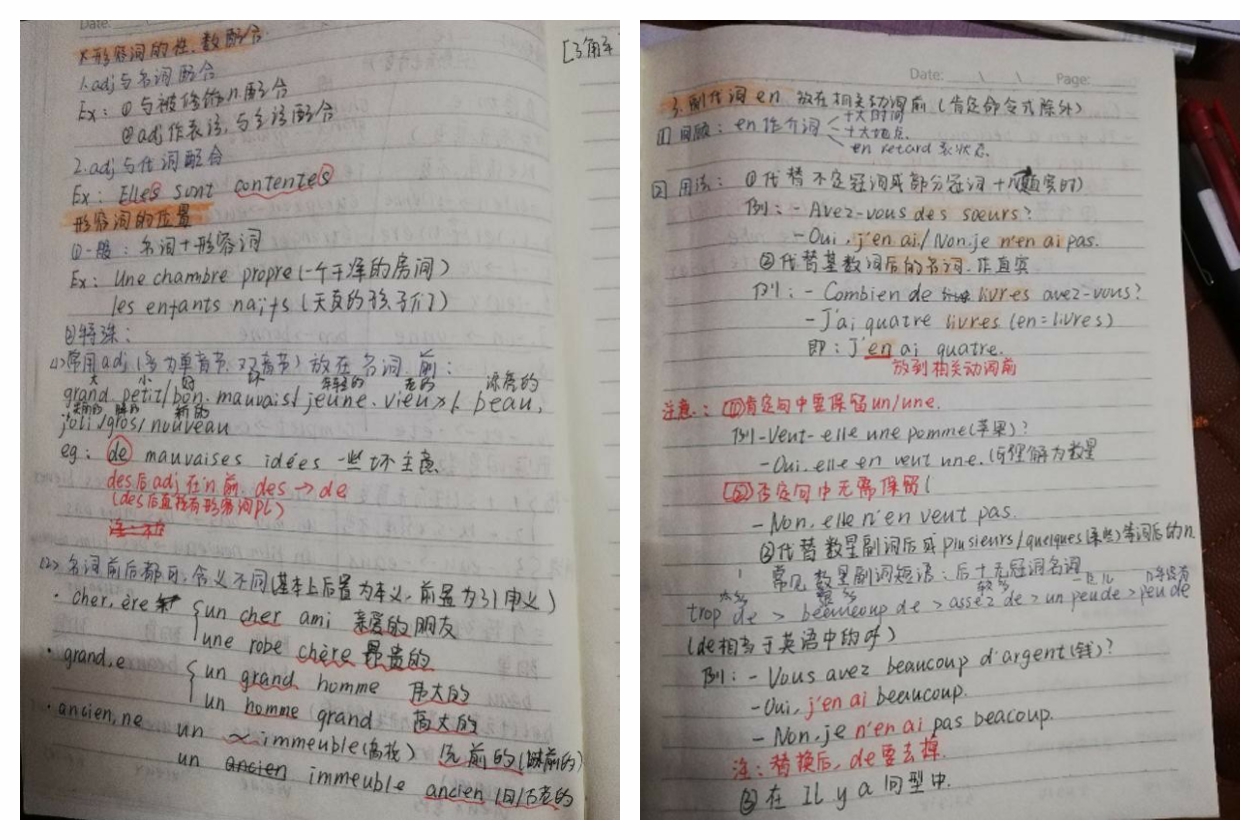 Date:
*形容词的性、数配合.
1.adj与名词配合
Ex: ①与被修饰n配合
②adj作表语,与主语配合
2.adj与代词配合
Ex: Elles sont contentes
形容词的位置
①一般: 名词+形容词
Ex: Une chambre propre(一个干净的房间)
les enfants naïfs(天真的孩子们)
②特殊:
(1)常用adj(多为单音节、双音节)放在名词前:
大 小 好 坏 年轻的 老的 漂亮的
grand.petit/bon.mauvais/jeune.vieux/beau,
新的
joli/gros/nouveau
eg: de mauvaises idées 一些坏主意
des后adj在n前 des→de
(des后直接有形容词pl)
(2)名词前后都可,含义不同(基本上后置为本义,前置为引申义)
·cher,ère un cher ami 亲爱的朋友
une robe chère 昂贵的
·grand,e un grand homme 伟大的
un homme grand 高大的
·ancien,ne un ~ immeuble(高楼) 先前的(以前的)
un ancien immeuble ancien 旧/古老的
Date: \ \ Page:
3.副代词en 放在相关动词前(肯定命令式除外)
[1]回顾: en作介词 +大的时间
+大地点.
en retard 表状态.
[2]用法: ①代替不定冠词或部分冠词+n
例:-Avez-vous des sœurs?
-Oui,j'en ai./Non.je n'en ai pas.
②代替基数词后的名词.作直宾
例:-Combien de livres avez-vous?
-J'ai quatre livres(en=livres)
即:J'en ai quatre.
放到相关动词前
注意: [1]肯定句中要保留un/une.
例-Veut-elle une pomme(苹果)?
-Oui.elle en veut une.(可理解为数量
[2]否定句中无需保留(
-Non.elle n'en veut pas.
③代替数量副词后或plusieurs/quelques(某些)等词后的n
常见数量副词短语:后+无冠词名词
太多 很多 较多 一点儿 几乎没有
trop de > beaucoup de > assez de > un peu de > peu de
(de相当于英语中的of)
例:-Vous avez beaucoup d'argent(钱)?
-Oui,j'en ai beaucoup.
-Non,je n'en ai pas beacoup.
注:替换后,de要去掉.
③在 Il y a 句型中.